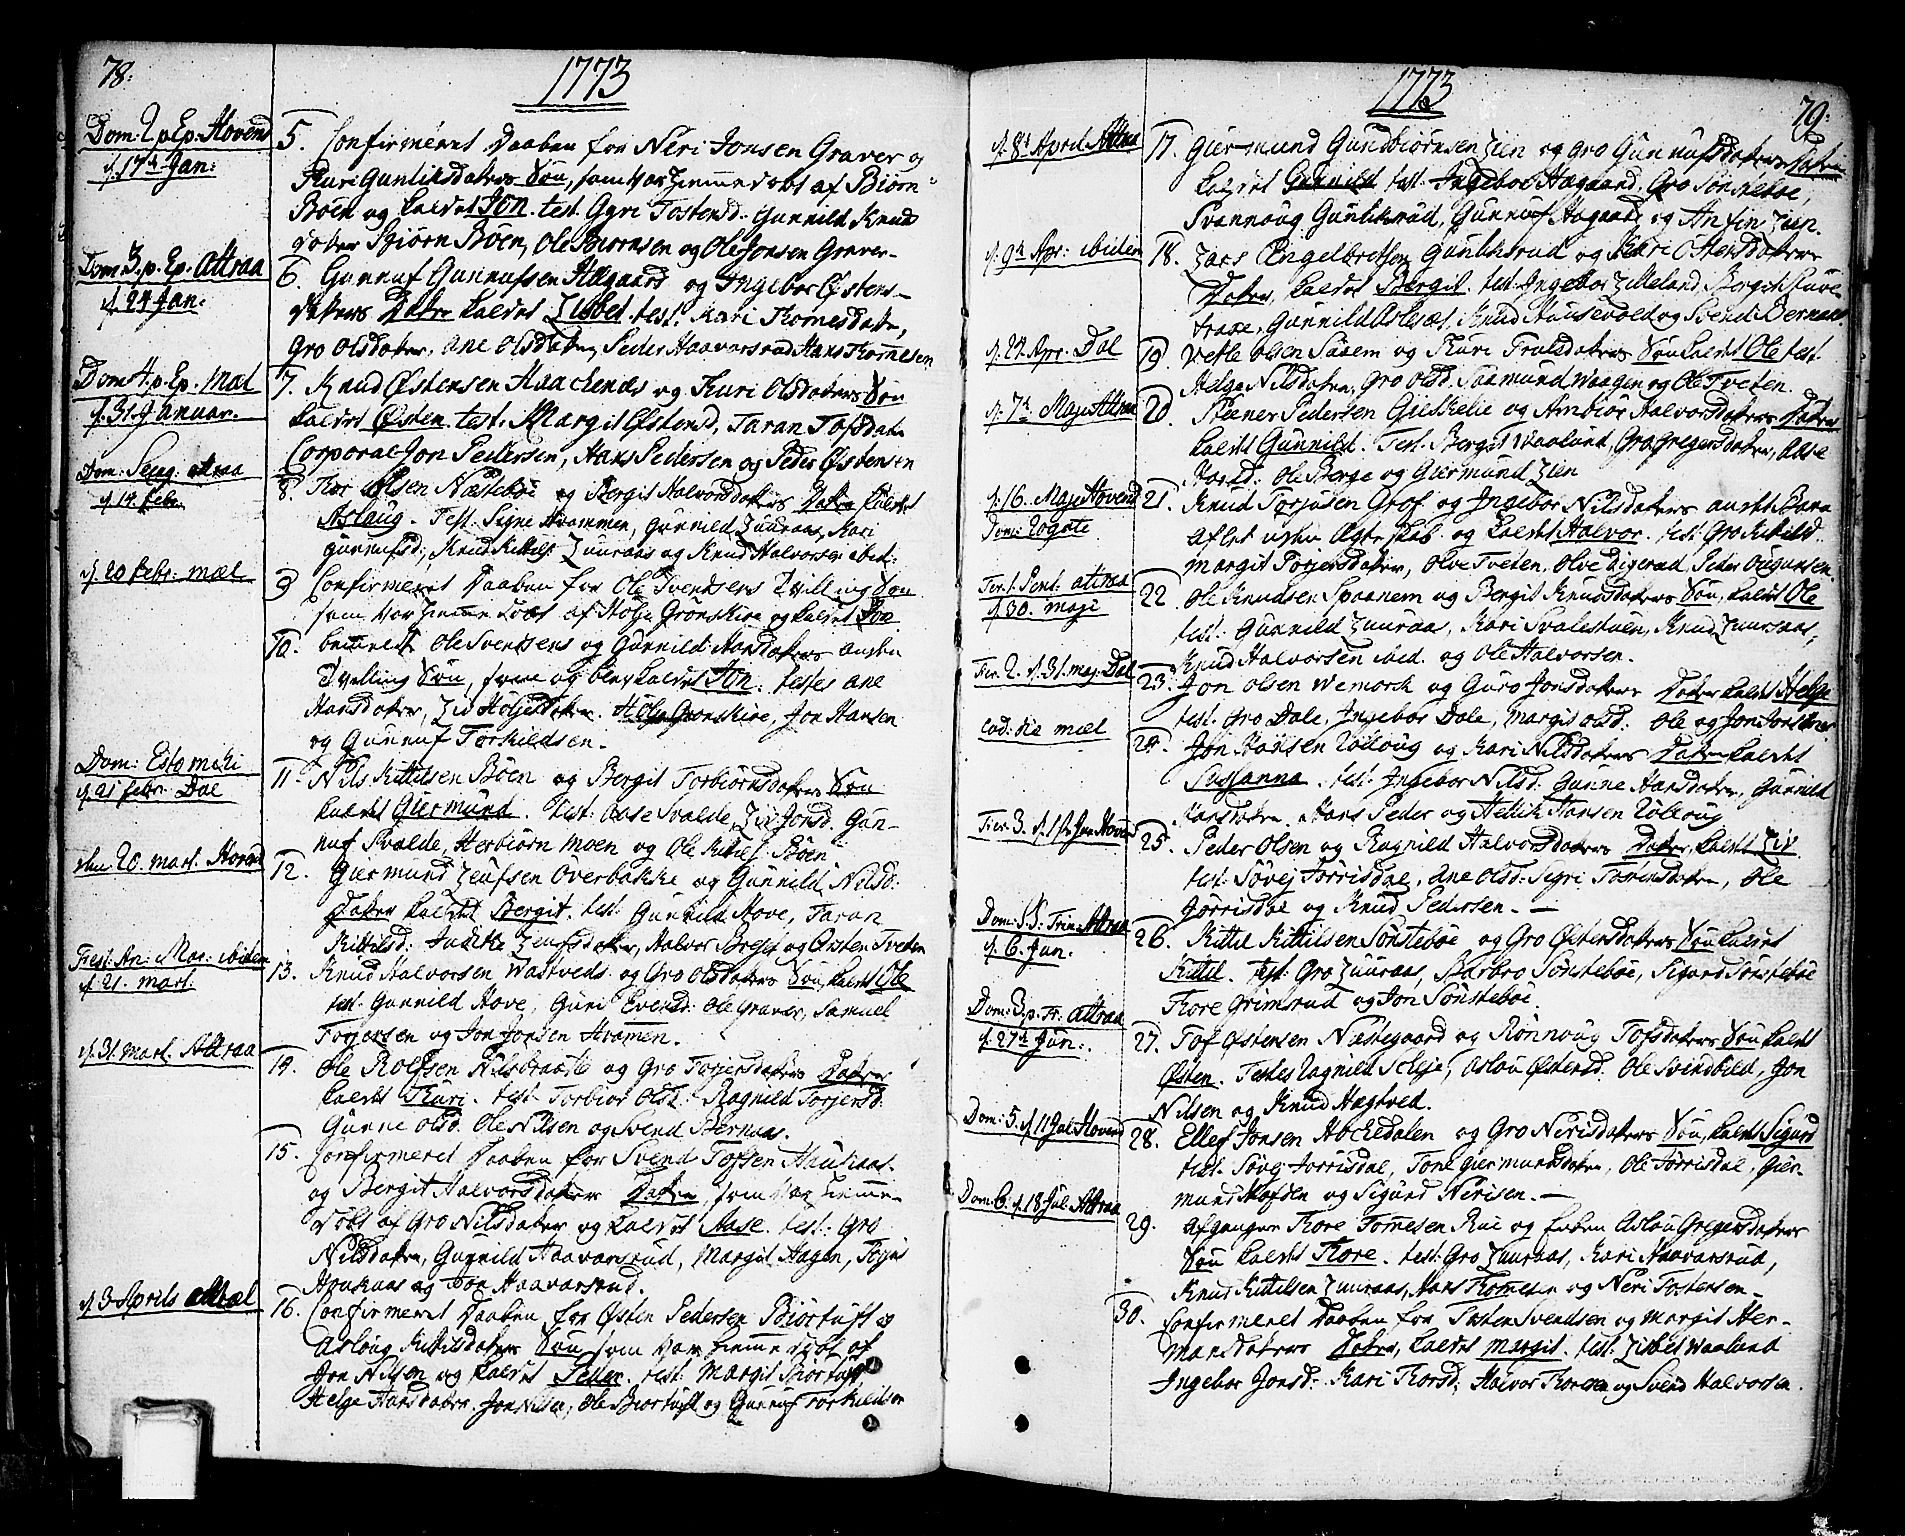 78:
1773
Dom: 2 p Ep: Hovend
d. 17de Jan:
5. Confirmeret Daaben for Neri Jonsen Graver og
Turi Gunliksdaters Søn, som var hiemmedøbt af Biørn
Bøen og kaldet Jon. test. Gyri Tostensd. Gunnild Knuds
dater Biørn Bøen, Ole Biørnsen og Ole Jonsen Graver.
Dom 3. p. Ep. Attraa
d. 24 Jan:
6. Gunnuf Gunnufsen Haagaard og Ingebor Østens-
daters Dater kaldet Lisbet. test: Kari Tomesdater,
Gro Olsdater, Ane Olsdater, Peder Haavarsrud Hans Tommesen
Dom 4. p. Ep. Mæl
d. 31 Januar.
7. Knud Østensen Haackenæs og Turi Olsdaters Søn
kaldet Østen. test: Margit Østensd, Taran Tofsdater
Corporal Jon Pedersen, Hans Pedersen og Peder Østensen
Dom: Sexag. Attraa
d. 14 Febr.
8. Tor Olsen Næstebøe og Bergit Halvorsdaters Dater kaldet
Aslaug. Test: Signe Hvammen, Gunnild Luuraas, Kari
Gunnufsd:, Knud Kittils: Luuraas og Knud Halvorsen ibid:
d. 20 Febr. Mæl
9 Confirmeret Daaben for Ole Svendsens Tvilling Søn
som var hiemme døbt af Hølje Grønskire og kaldet Jon
10. bemeldte Ole Svendsens og Gunnild Hansdaters anden
Tvilling Søn, kaldet Jon. testes Ane
Hansdater, Liv Høljesdater. Hølje Grønskire, Jon Hansen
og Gunnuf Torkildsen.
Dom: Estomihi
d. 21 Febr. Dal
11. Nils Kittilsen Bøen og Bergit Torbiørnsdaters Søn
kaldet Giermund. test: Aase Svalde, Liv Jonsd. Gun-
nuf Svalde, Herbiørn Moen og Ole Kittils: Bøen
den 20. Mart. Hovend
12. Giermund Leufsen Øverbakke og Gunnild Nilsd:
Dater kaldet Bergit. test: Gunnild Hove, Taran
Kittilsd: Leufsdater, Halvor og Østen Tveten
Fest. An: Mar: ibidem
d. 21. Mart.
13. Knud Halvorsen og Gro Olsdaters Søn, kaldet Ole
test: Gunnild Hove, Guri Evensd: Ole Graver, Samuel
Torjersen og Jon Jonsen Hvamen.
d. 31. Mart. Attraa
14. Ole Rolfsen og Gro Torjersdaters Dater
kaldet Turi. test: Torbior Olsd: Ragnild Torjersd:
Gunne Olsd. Ole Nilsen og Svend Bernaas.
15. Confirmeret Daaben for Svend Tofsen Haukaas
og Bergit Halvorsdaters Dater, som var hiemme-
døbt af Gro Nilsdater og kaldet Aase. test: Gro
Nilsdater, Gunnild Haavarsrud, Margit Hagen, Torjus
Haukaas og Jon Haavarsrud.
d. 3 Aprils
16. Confirmeret Daaben for Østen Pedersen Biørtuft og
Aslaug Kittilsdaters Søn som var hiemme døbt af
Jon Nilsen og kaldet Peder. test: Margit Biørtuft
Helge Hansdater, Jon Nilsen, Ole Biørtuft og Gunnuf Torkildsen
79:
1773
d. 8de April Attraa
17. Giermund Gundbiørnsen Lien og Gro Gunnufsdaters Dater
kaldet Gunnild. test. Ingebor Haagaard, Gro Sønstebøe,
Svannoug Gunliksrud, Gunnuf Haagaard og Anfin Lien.
d. 9de Apr: ibidem
18. Lars Engelbretsen Gunliksrud og Kari Ottersdaters
Dater, kaldet Bergit. test: Ingebor Lilleland, Bergit
Gunnild Knud Haasevold og Svend Bernaas
d. 29. Apr. Dal
19. Vetle Olsen Saaem og Turi Trulsdaters Søn kaldet Ole test.
Helge Nilsdater, Gro Olsd. Saamund Waagen og Ole Tveten.
d. 7de Maji Attraa
20. Steener Pedersen Gieskelie og Ambior Halvorsdaters Dater
kaldet Gunnild. Test: Bergit Waalund, Gro Gregersdater, Aase
Ole Berge og Giermund Lien
d. 16. Maji Hovend
Dom: Rogate
21. Knud Torjusen Grof og Ingebor Nilsdaters Barn
aflet uden Ægteskab og kaldet Halvor. test: Gro Kittilsd.
Margit Torjersdater, Olve Tveten, Peder Augunsen.
Fer. 1. Pent. Attraa
d. 30. Maji
22. Ole Knudsen Spaanem og Bergit Knudsdaters Søn, kaldet Ole
test: Gunnild Luuraas, Kari Svalestuen, Knud Luuraas,
Knud Halvorsen ibid. og Ole Halvorsen.
Fer. 2. d. 31. Maj. Dal
23. Jon Olsen Wemork og Guro Jonsdaters Dater kaldet Helge
test: Gro Dale, Ingebor Dale, Margit Olsd: Ole og Jon
eod: die Mæl
24. Jon Hansen Rolloug og Kari Nilsdaters Dater kaldet
Sussanna. test: Ingebor Nilsd: Gunne Hansdater, Gunnild
Hansdater. Hans Peder og Hellik Hansen Rolloug
Fer. 3. d. 1ste Jun Hovend
25. Peder Olsen og Ragnild Halvorsdaters Dater, kaldet Liv
test: Søvej Jorrisdal, Ane Olsd: Sigri Dater, Ole
Jorrisdal og Knud Pedersen.
Dom: SS: Trin. Attraa
d. 6. Jun.
26. Kittil Kittilsen Sønstebøe og Gro Østensdaters Søn kaldet
Kittil. Test: Gro Luuraas, Barbro Sønstebøe, Sigurd Sønstebøe
Tore Grimsrud og Jon Sønstebøe.
Dom: 3. p. Tr. Attraa
d. 27de Jun:
27. Tof Østensen Næsegaard og Rønnoug Tofsdaters Søn kaldet
Østen. Testes Ragnild Skeje, Aslou Østensd: Ole Svindbild, Jon
Nilsen og Knud Hægtved.
Dom: 5. d. 11 Jul. Hovend
28. Ellef Jonsen Høckedalen og Gro Nirisdaters Søn, kaldet Sigurd
test. Søvej Jorrisdal, Tone Giermundsdater, Ole Jorrisdal, Gier-
mund og Sigurd Nerisen.
Dom: 6. d. 18 Jul. Attraa
29. Afgangne Tore Tommesen Rue og Enken Aslou Gregersdaters
Søn kaldet Tore. test: Gro Luuraas, Kari Haavarsrud,
Knud Kittilsen Luuraas, Hans Tomesen og Neri Tostensen.
30. Confirmeret Daaben for Svendsen og Margit Her-
mansdaters Dater, kaldet Margit. test: Lisbet Waalund
Ingebor Jonsd: Kari Torsd, Halvor Toresen og Svend Halvorsen.